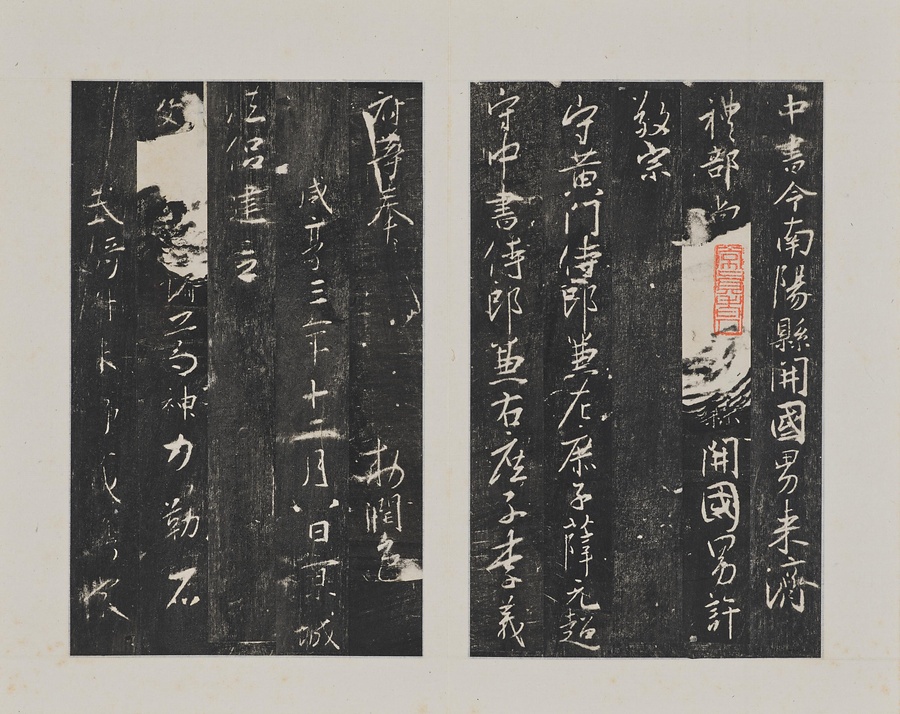 中書令南陽縣開國男来濟
禮部尚縣開國男許
敬宗
守黄門侍郎兼左庶子薛元超
守中書侍郎兼右庶子李義
府等奉 勅潤色
咸亨三年十二月八日京城
法侶建立
文諸葛神力勒石
武騎尉朱静藏